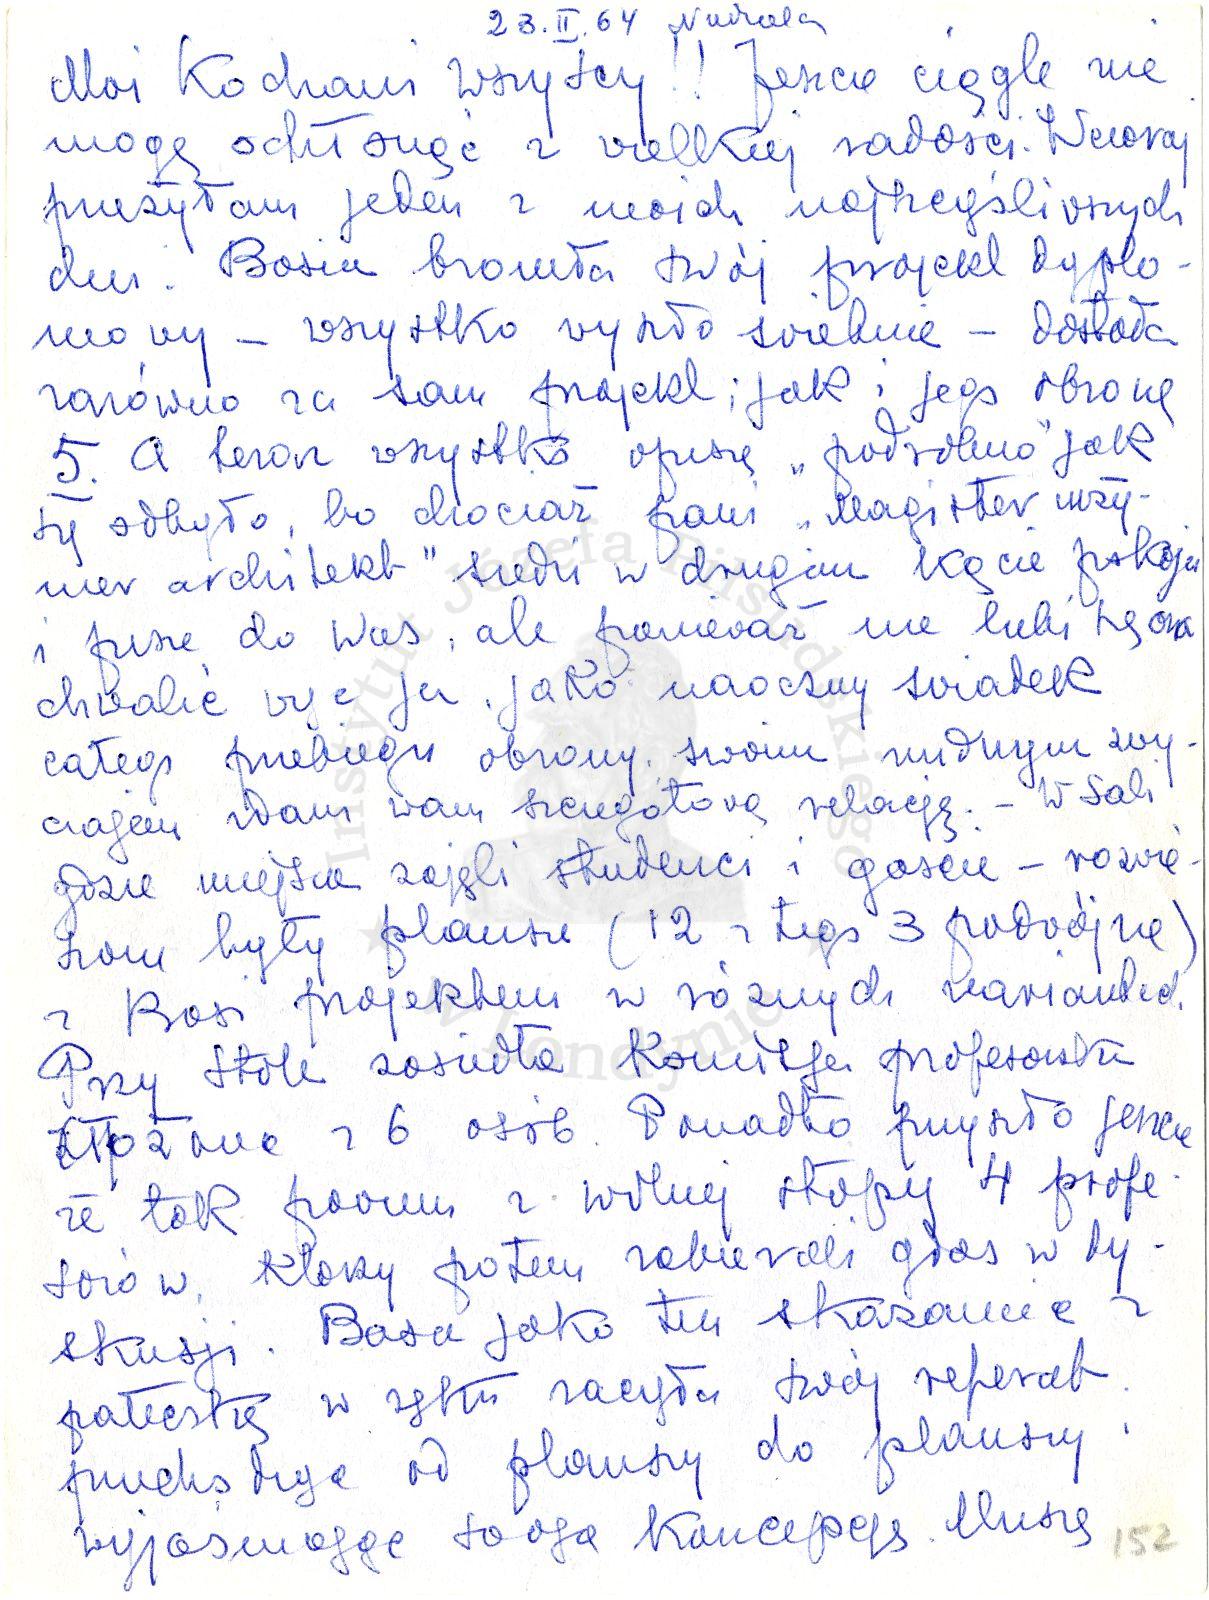 23.II.64 Niedziela
Moi Kochani Wszyscy!! Jeszcze ciągle nie
mogę ochłonąć z wielkiej radości. Wczoraj
przeżyłam jeden z moich najszczęśliwszych
dni. Basia broniła swój projekt dyplo-
mowy – wszystko wyszło świetnie – dostała
zarówno za sam projekt, jak i jego obronę
5. A teraz wszystko opiszę „podrobno" jak
się odbyło, bo chociaż pani „Magister inży-
nier architekt" siedzi w drugim kącie pokoju
i pisze do Was, ale ponieważ nie lubi się ona
chwalić więc ja, jako naoczny świadek
całego przebiegu obrony, swoim nudnym zwy-
czajem zdam wam szczegółową relację. – W sali
gdzie miejsca zajęli studenci i goście – rozwie-
szone były plansze (12 z tego 3 podwójne)
z Basi projektem w różnych wariantach.
Przy stole zasiadła Komisja profesorska
złożona z 6 osób. Ponadto przyszło jeszcze
że tak powiem z wolnej stopy 4 profe-
sorów, którzy potem zabierali głos w dy-
skusji. Basia jako ten skazaniec z
pałeczką w ręku zaczęła swój referat
przechodząc od planszy do planszy i
wyjaśniając swoją koncepcję. Muszę
152
Instytut Józefa Piłsudskiego
w Londynie